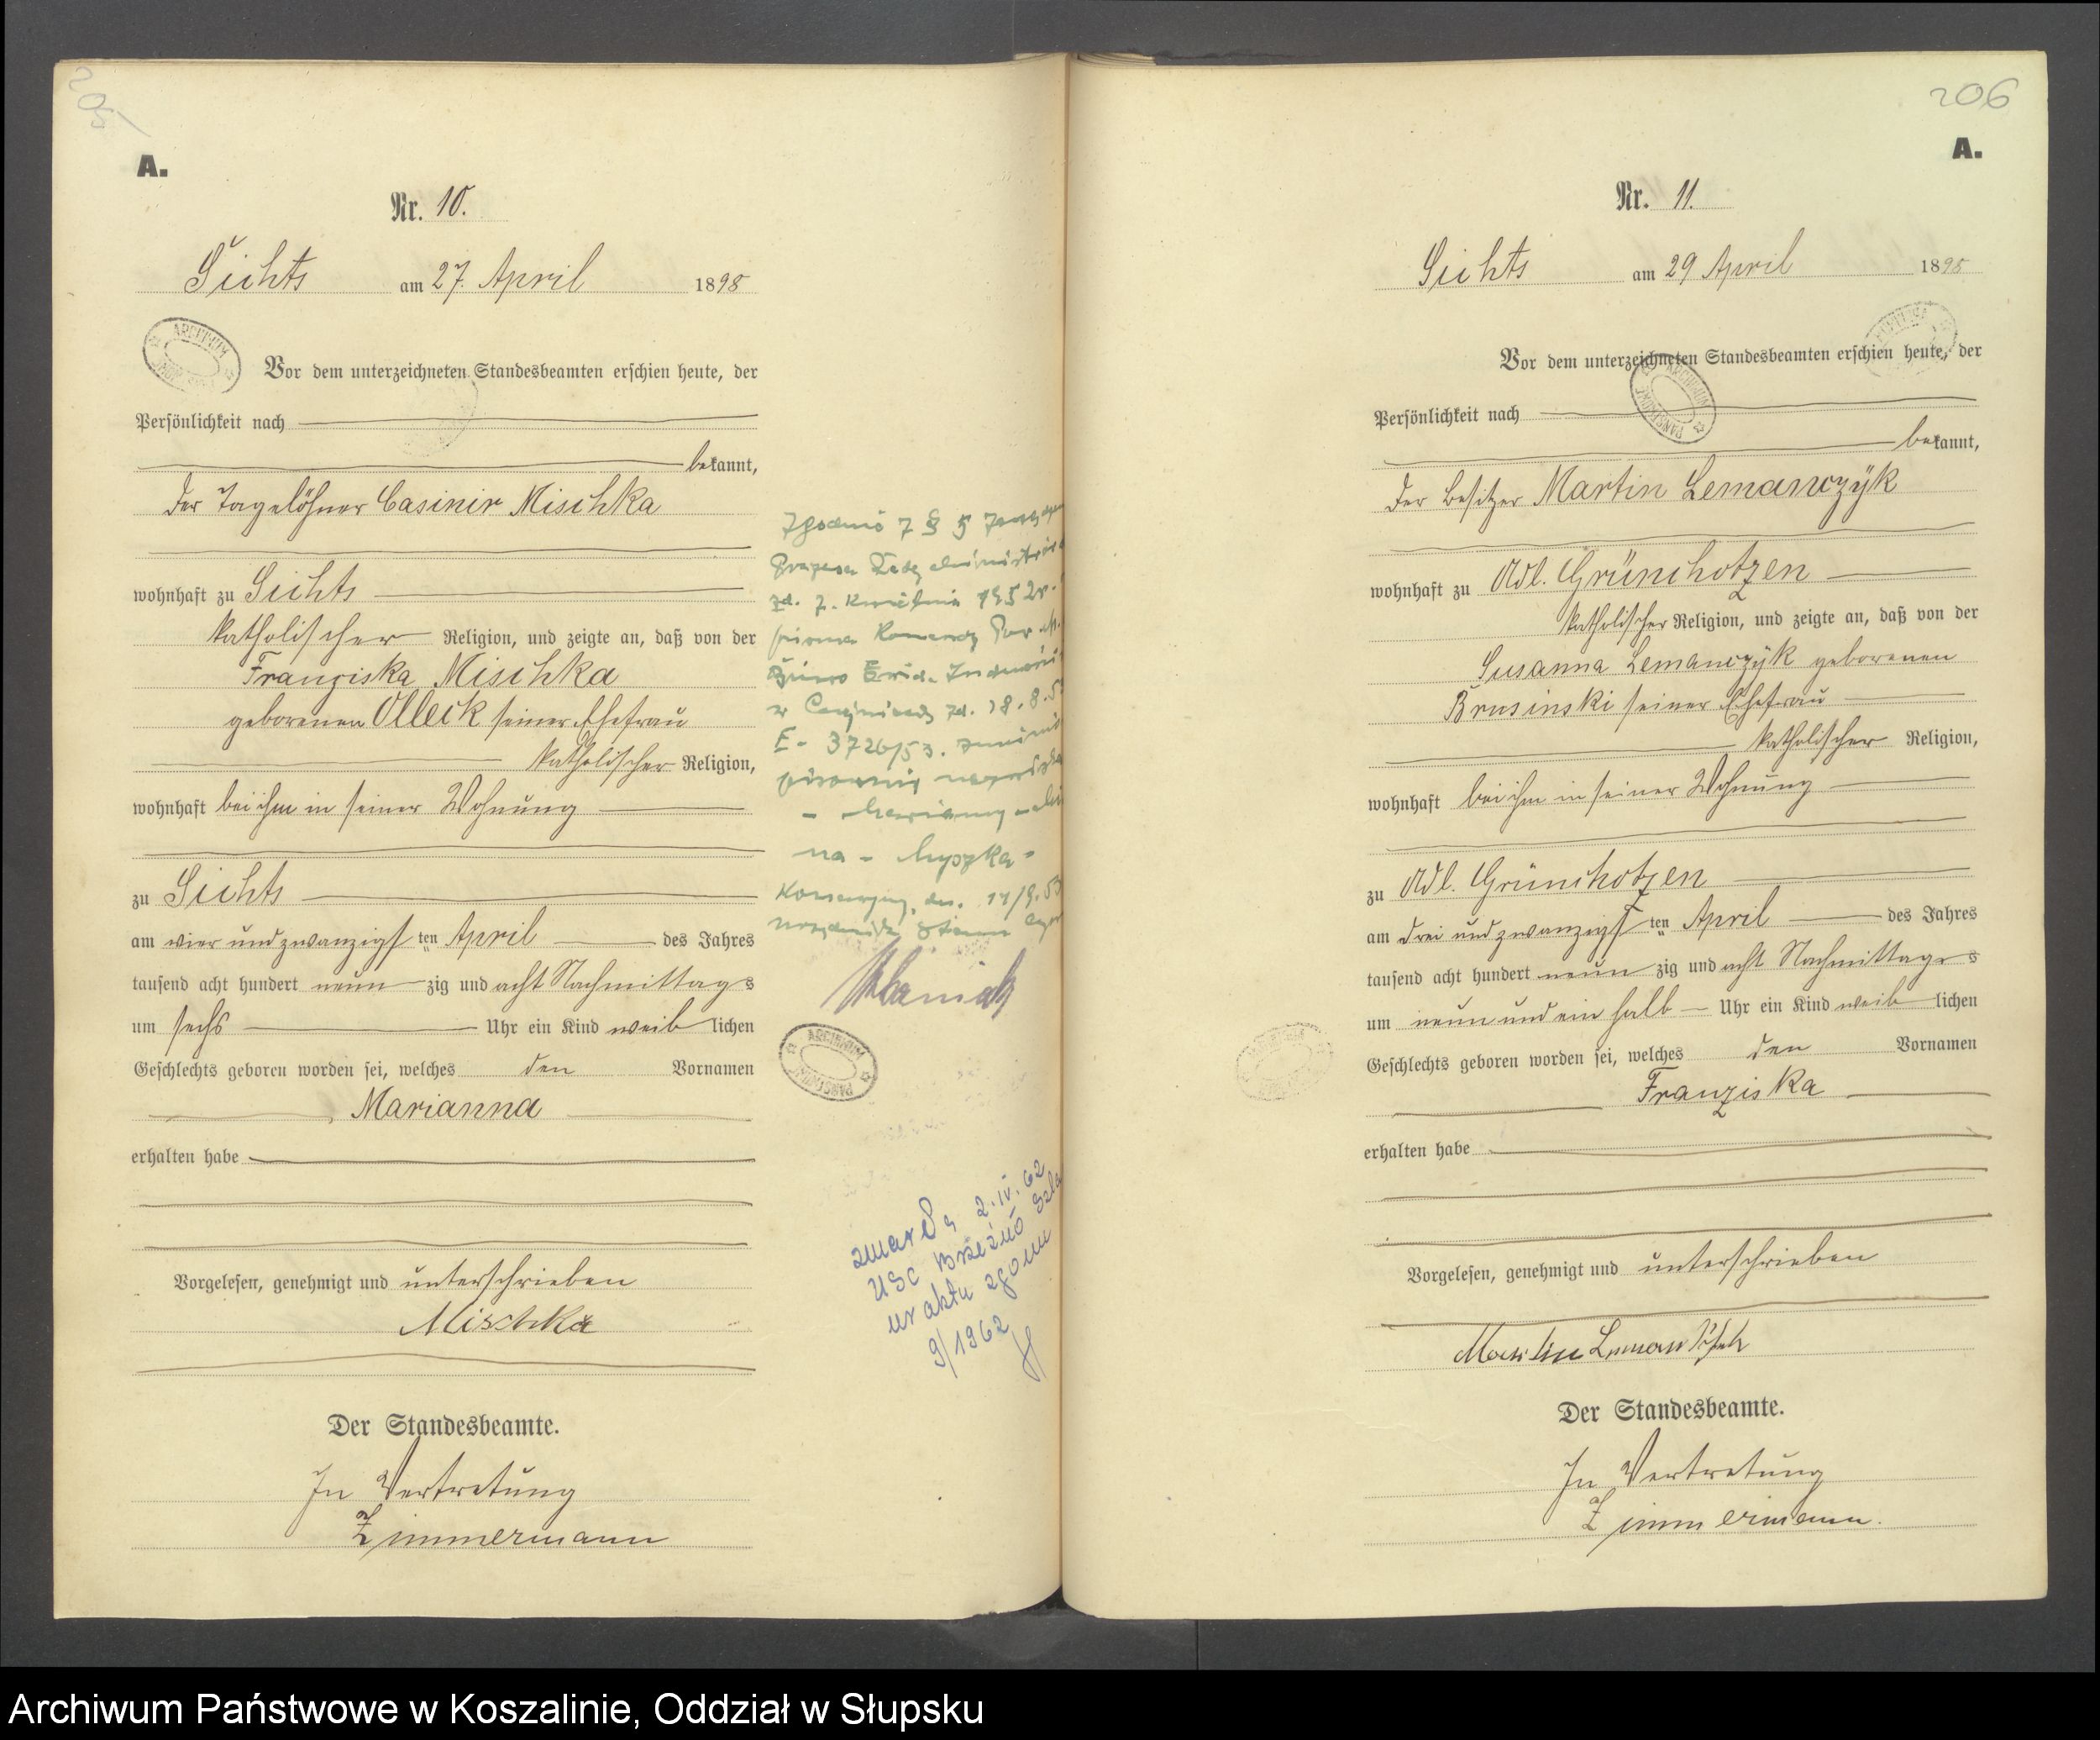 205
A.
Nr. 10.
Sichts am 27. April 1898
ARCHIWUM
Vor dem unterzeichneten Standesbeamten erschien heute, der
Persönlichkeit nach
bekannt,
der Tagelöhner Casimir Mischka
wohnhaft zu Sichts
katholischer Religion, und zeigte an, daß von der
Franziska Mischka
geborenen Olleck seiner Ehefrau
katholischer Religion,
wohnhaft bei ihm in seiner Wohnung
zu Sichts
am vier und zwanzigsten April des Jahres
tausend acht hundert neunzig und acht Nachmittags
um sechs Uhr ein Kind weiblichen
Geschlechts geboren worden sei, welches den Vornamen
Marianna
erhalten habe
Vorgelesen, genehmigt und unterschrieben
Mischka
Der Standesbeamte.
In Vertretung
Zimmermann
z § 5
1952r.
zd. 18.8.
E - 3726/53.
na - Myszka -
ARCHIWUM PAŃSTWOWE
zmarła 2.IV.62
USC Brzeźno Szla
nr aktu zgonu
9/1962
206
A.
Nr. 11.
Sichts am 29 April 1898
Vor dem unterzeichneten Standesbeamten erschien heute, der
ARCHIWUM PAŃSTWOWE
Persönlichkeit nach
bekannt,
der Besitzer Martin Lemanczÿk
wohnhaft zu Adl. Grünchotzen
katholischer Religion, und zeigte an, daß von der
Susanna Lemanczÿk geborenen
Brusinski seiner Ehefrau
katholischer Religion,
wohnhaft bei ihm in seiner Wohnung
zu Adl. Grünchotzen
am drei und zwanzigsten April des Jahres
tausend acht hundert neunzig und acht Nachmittags
um neun und ein halb Uhr ein Kind weiblichen
Geschlechts geboren worden sei, welches den Vornamen
Franziska
erhalten habe
Vorgelesen, genehmigt und unterschrieben
Martin
Der Standesbeamte.
In Vertretung
Zimmermann.
Archiwum Państwowe w Koszalinie, Oddział w Słupsku